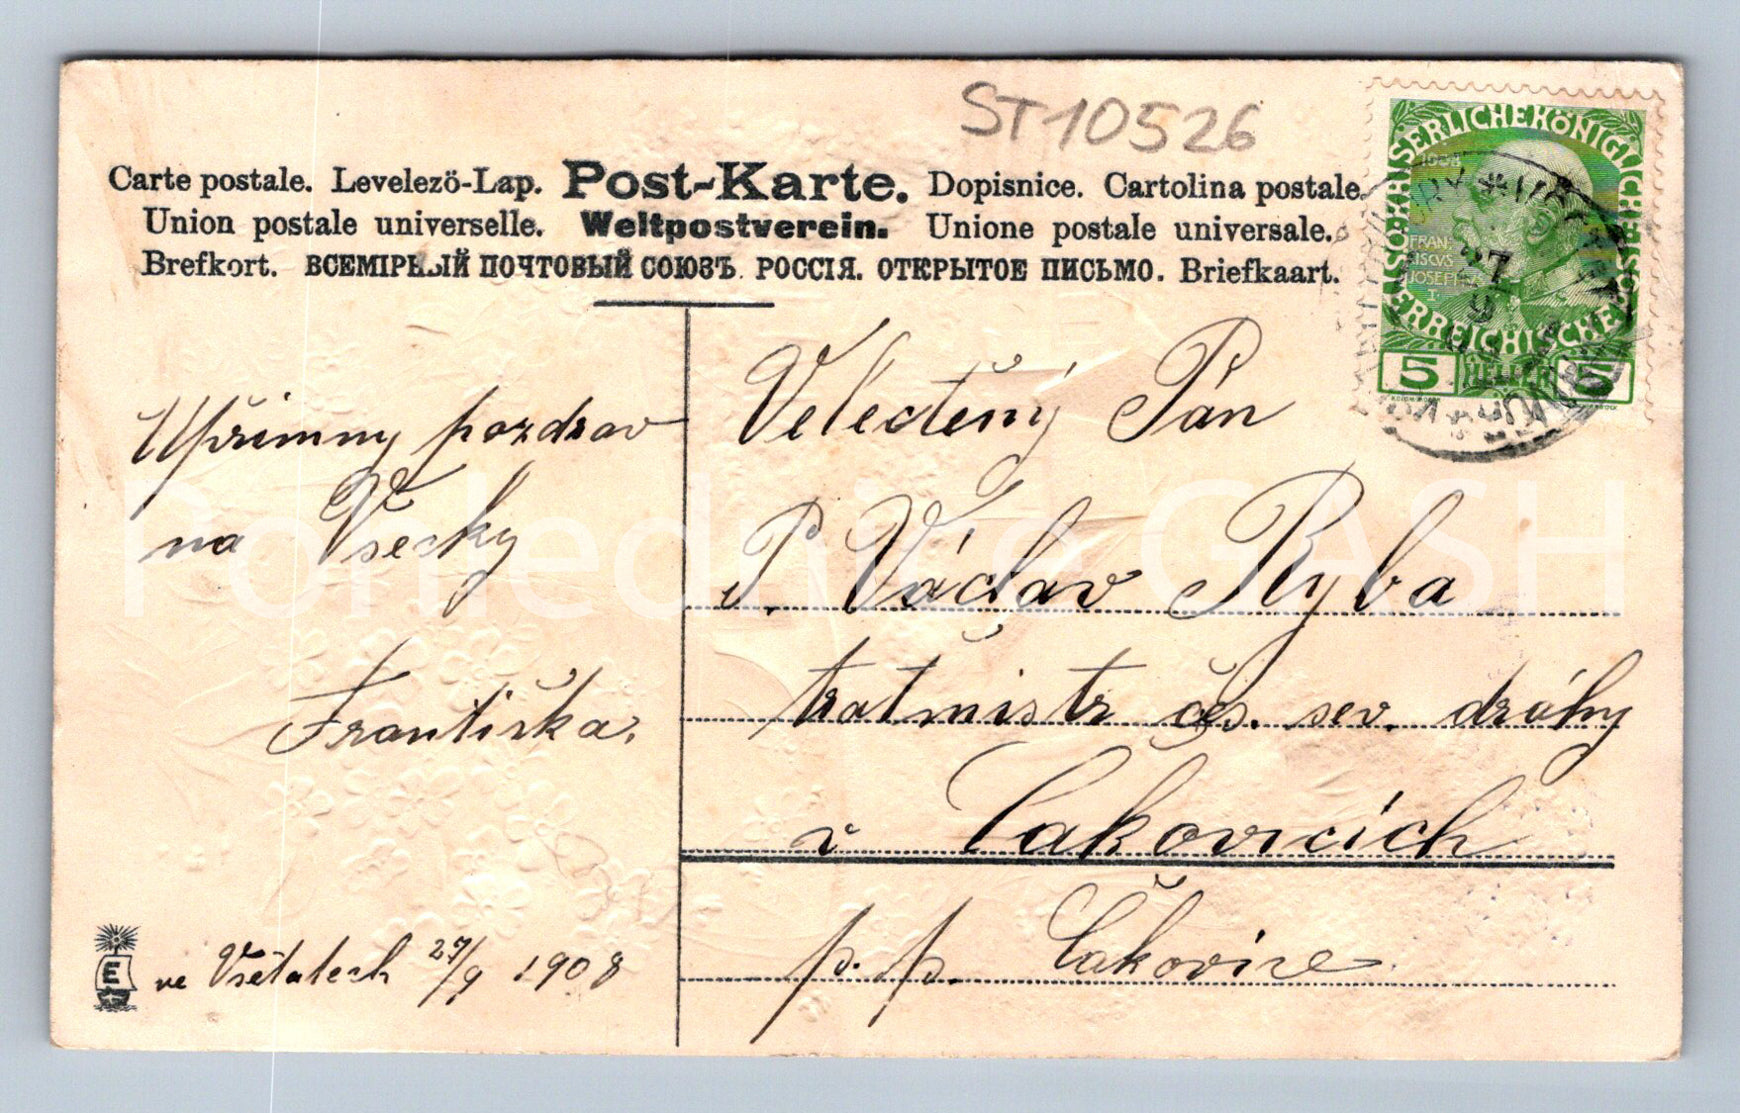 ST10526
Carte postale. Levelezö-Lap. Post-Karte. Dopisnice. Cartolina postale.
Union postale universelle. Weltpostverein. Unione postale universale.
Brefkort. ВСЕМІРНЫЙ ПОЧТОВЫЙ СОЮЗЪ. РОССІЯ. ОТКРЫТОЕ ПИСЬМО. Briefkaart.
KAISERLICHEKÖNIGLICHE
ÖSTERREICHISCHE
1908
FRAN-
ISCVS
IOSEPHVS
I.
5 HELLER 5
27
9
Upřímny pozdrav
na Všecky
Františka.
ve Všetatech 27/9 1908
Velectěný Pán
P. Václav Ryba
tratmistr čes. sev. dráhy
v Čakovicích
p. p. Čakovice
E
Pohlednice GASH